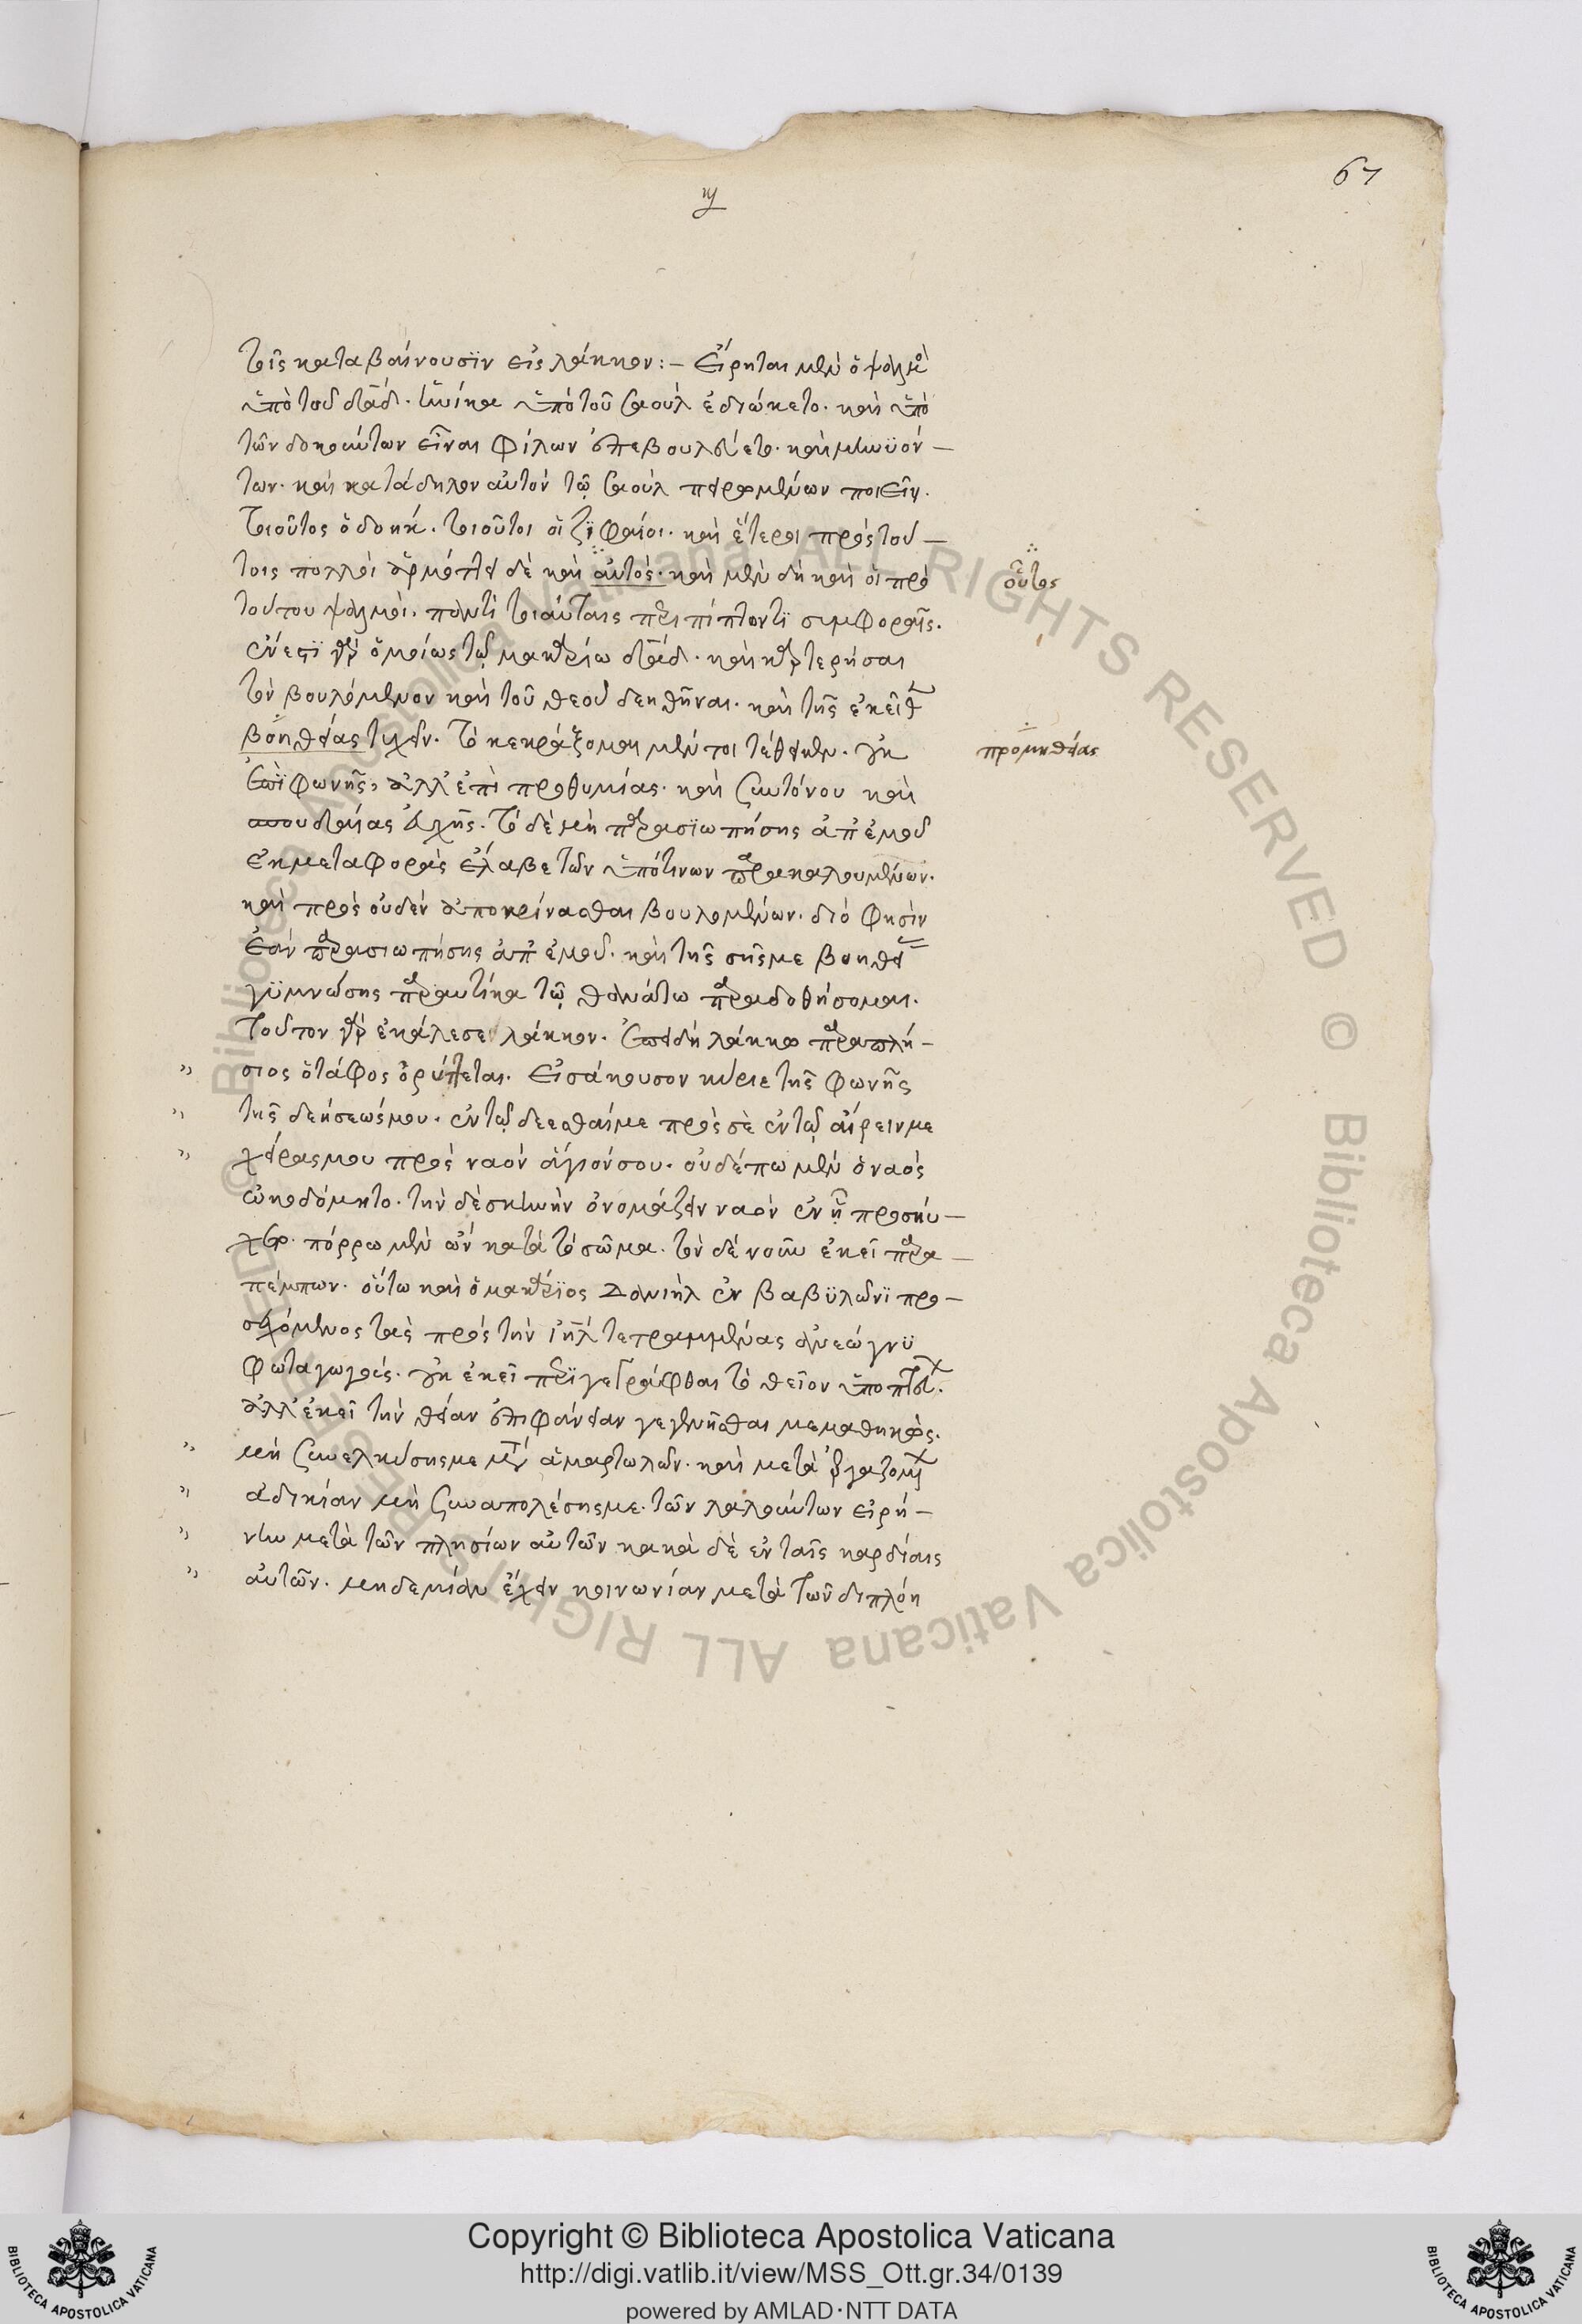 67
τοῖς καταβαίνουσϊν εἰς λάκκον :– Εἴρηται μὲν ὁ ψαλμὸ
ὑπὸ τοῦ δαδ. ἡνίκα ὑπὸ τοῦ σαοὺλ ἐδιώκετο. καὶ ὑπὸ
τῶν δοκούντων εἶναι φίλων ἐπεβουλεύετο. καὶ μηνϋόν –
των. καὶ κατάδηλον αὐτὸν τῷ σαοὺλ πειρωμένων ποιεῖν.
τοιοῦτος ὁ δοήκ. τοιοῦτοι οἱ ζϊφαίοι. καὶ ἕτεροι πρὸς τού –
τοις πολλοὶ ἁρμόττει δὲ καὶ αὐτὸς. καὶ μὲν δὴ καὶ οἱ πρὸ
τούτου ψαλμοὶ. παντὶ τοιαύταις περιπίπτοντϊ συμφοραῖς.
ἔνεστϊ γὰρ ὁμοίως τῷ μακαρίω δαδ. καὶ καρτερῆσαι
τὸν βουλόμενον καὶ τοῦ θεοῦ δεηθῆναι. καὶ τῆς ἐκεῖθ
βοηθείας τυχεῖν. τὸ κεκράξομαι μέν τοι τέθεικεν. οὐκ
ἐπϊ φωνῆς, ἀλλ' ἐπὶ προθυμίας. καὶ συντόνου καὶ
σπουδαίας εὐχῆς. τὸ δὲ μὴ παρασϊωπήσης ἀπ' ἐμοῦ
ἐκ μεταφορὰς ἔλαβε τῶν ὑπό τινων παρακαλουμένων.
καὶ πρὸς οὐδὲν ἀποκρίνασθαι βουλομένων. διό φησὶν
ἐὰν παρασιωπήσης ἀπ' ἐμοῦ. καὶ τῆς σῆς με βοηθεί
γϋμνώσης παραυτίκα τῷ θανάτω παραδοθήσομαι.
τοῦτον γὰρ ἐκάλεσε λάκκον. ἐπειδὴ λάκκω παραπλή –
" σιος ὁ τάφος ὀρύττεται. Εἰσάκουσον κύριε τῆς φωνῆς
" τῆς δεήσεώς μου. ἐν τῷ δεεσθαί με πρὸς σὲ ἐν τῷ αἴρειν με
" χεῖρας μου πρὸς ναὸν ἅγιόν σου. οὐδέπω μὲν ὁ ναὸς
ὠκοδόμητο. τὴν δὲ σκηνὴν ὀνομάζειν ναὸν ἐν ᾗ προσηύ –
χετο. πόρρω μὲν ὢν κατὰ τὸ σῶμα. τὸν δὲ νοῦν ἐκεῖ παρα –
πέμπων. οὕτω καὶ ὁ μακάρϊος Δανιὴλ ἐν βαβϋλῶνϊ προ –
σευχόμενος τὰς πρὸς τὴν ἰηλ τετραμμένας ἀνεώγνϋ
φωταγωγοὺς. οὐκ ἐκεῖ περϊγεγράφθαι τὸ θεῖον ὑποπτεύ.
ἀλλ' ἐκεῖ τὴν θείαν ἐπιφάνειαν γεγενῆσθαι μεμαθηκὼς.
" μὴ συνελκύσης με μετὰ ἁμαρτωλῶν. καὶ μετὰ ἐργαζομ
" ἀδικίαν μὴ συναπολέσης με. τῶν λαλούντων εἰρή –
" νην μετὰ τῶν πλησίων αὐτῶν κακὰ δὲ ἐν ταῖς καρδίαις
" αὐτῶν. μηδεμίαν ἔχειν κοινωνίαν μετὰ τῶν διπλόη
οὗτος
προμηθείας
© Biblioteca Apostolica Vaticana ALL RIGHTS RESERVED © Biblioteca Apostolica Vaticana ALL RIGHTS RESERVED
BIBLIOTECA APOSTOLICA VATICANA
Copyright © Biblioteca Apostolica Vaticana
http://digi.vatlib.it/view/MSS_Ott.gr.34/0139
powered by AMLAD·NTT DATA
BIBLIOTECA APOSTOLICA VATICANA